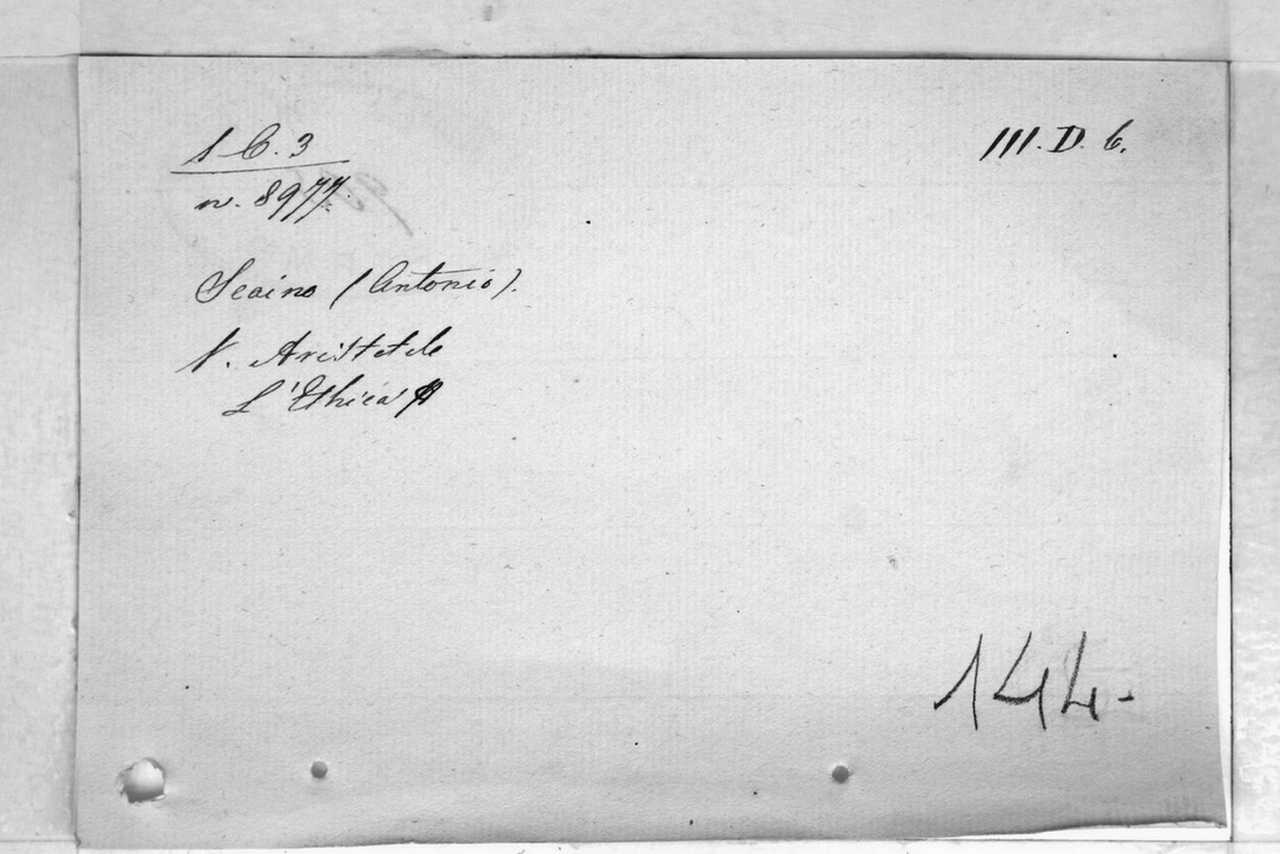 1 C. 3
III. D. 6.
n. 8977.
Scaino (Antonio).
V. Aristotele
L'Ethica
144.